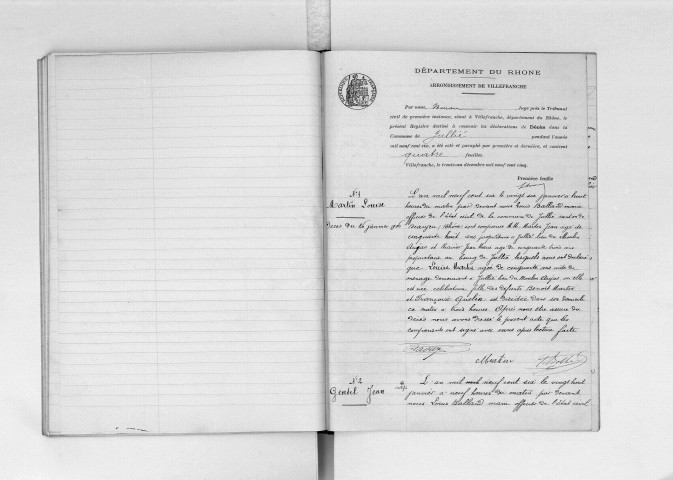 DÉPARTEMENT DU RHONE
ARRONDISSEMENT DE VILLEFRANCHE
Par nous, Juge près le Tribunal
civil de première instance, séant à Villefranche, département du Rhône, le
présent Registre destiné à contenir les déclarations de Décès dans la
Commune de Jullié pendant l'année
mil neuf cent six, a été coté et paraphé par première et dernière, et contient
quatre feuilles.
Villefranche, le trente-un décembre mil neuf cent cinq.
Première feuille
N° 1
Martin Louise
Décès du 26 janvier 906
L'an mil neuf cent six le vingt six janvier à huit
heures du matin par devant nous Louis Balland maire
officier de l'état civil de la commune de Jullié canton de
Beaujeu Rhône sont comparus M.M. Martin Jean agé de
cinquante huit ans propriétaire à Jullié lieu du Moulin
et Jean agé de cinquante trois ans
propriétaire au bourg de Jullié lesquels nous ont déclaré
que Louise Martin agée de cinquante ans
ménage demeurant à Jullié lieu du Moulin où elle
est née célibataire fille des défunts Benoit Martin
et Françoise est décédée dans son domicile
ce matin à trois heures. Après nous être assuré du
décès nous avons dressé le présent acte que les
comparants ont signé avec nous après lecture faite
Martin
N° 2
Gentil Jean
L'an mil neuf cent six le vingt huit
janvier à neuf heures du matin par devant
nous Louis Balland maire officier de l'état civil